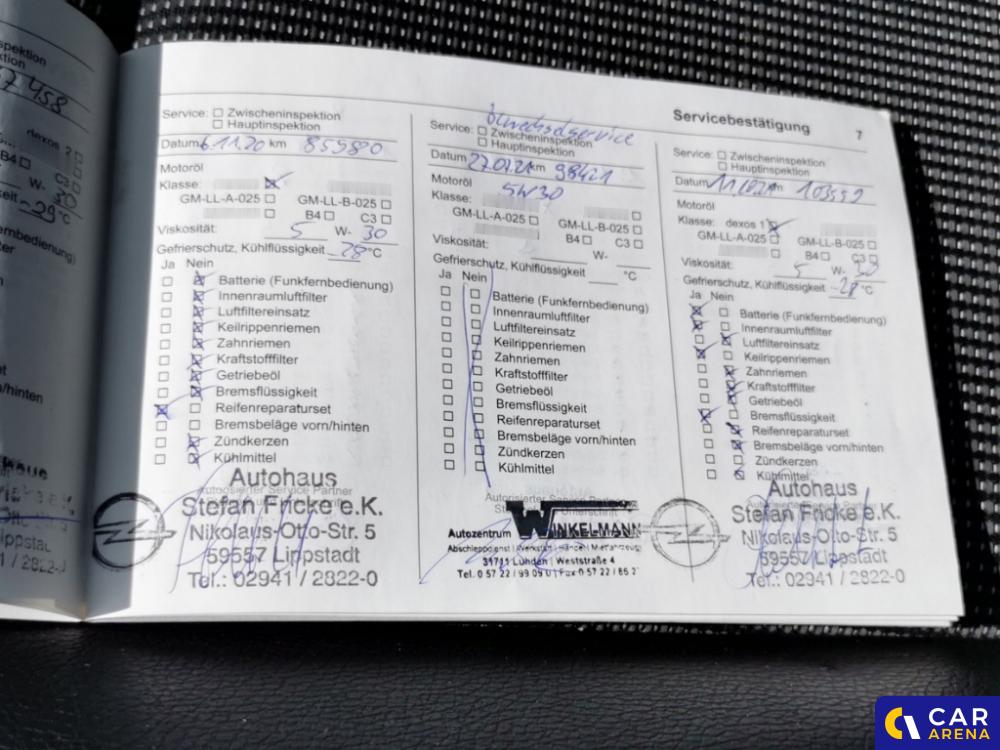 spektion
57458
dexos 2
B4
C3
W- 30
-29 °C
nbedienung)
/hinten
Servicebestätigung 7
Service: Zwischeninspektion
Hauptinspektion
Datum 6.11.20 km 85980
Motoröl
Klasse:
GM-LL-A-025 GM-LL-B-025
B4 C3
Viskosität: 5 W- 30
Gefrierschutz, Kühlflüssigkeit -28 °C
Ja Nein
Batterie (Funkfernbedienung)
Innenraumluftfilter
Luftfiltereinsatz
Keilrippenriemen
Zahnriemen
Kraftstofffilter
Getriebeöl
Bremsflüssigkeit
Reifenreparaturset
Bremsbeläge vorn/hinten
Zündkerzen
Kühlmittel
Autorisierter Service Partner
Autohaus
Stefan Fricke e.K.
Nikolaus-Otto-Str. 5
59557 Lippstadt
Tel.: 02941 / 2822-0
Service: Zwischeninspektion
Hauptinspektion
Datum 27.01.21 km 98421
Motoröl 5W30
Klasse:
GM-LL-A-025 GM-LL-B-025
B4 C3
Viskosität: W-
Gefrierschutz, Kühlflüssigkeit °C
Ja Nein
Batterie (Funkfernbedienung)
Innenraumluftfilter
Luftfiltereinsatz
Keilrippenriemen
Zahnriemen
Kraftstofffilter
Getriebeöl
Bremsflüssigkeit
Reifenreparaturset
Bremsbeläge vorn/hinten
Zündkerzen
Kühlmittel
Autorisierter Service Partner
Autozentrum WINKELMANN
Abschleppdienst | Werkstatt | Handel | Mietfahrzeuge
31711 Luhden | Weststraße 4
Tel. 0 57 22 / 99 09 0 | Fax 0 57 22 / 86 2
Service: Zwischeninspektion
Hauptinspektion
Datum km 103559
Motoröl
Klasse: dexos 1
GM-LL-A-025 GM-LL-B-025
B4 C3
Viskosität: 5 W- 30
Gefrierschutz, Kühlflüssigkeit -28 °C
Ja Nein
Batterie (Funkfernbedienung)
Innenraumluftfilter
Luftfiltereinsatz
Keilrippenriemen
Zahnriemen
Kraftstofffilter
Getriebeöl
Bremsflüssigkeit
Reifenreparaturset
Bremsbeläge vorn/hinten
Zündkerzen
Kühlmittel
Autohaus
Stefan Fricke e.K.
Nikolaus-Otto-Str. 5
59557 Lippstadt
Tel.: 02941 / 2822-0
CAR
ARENA